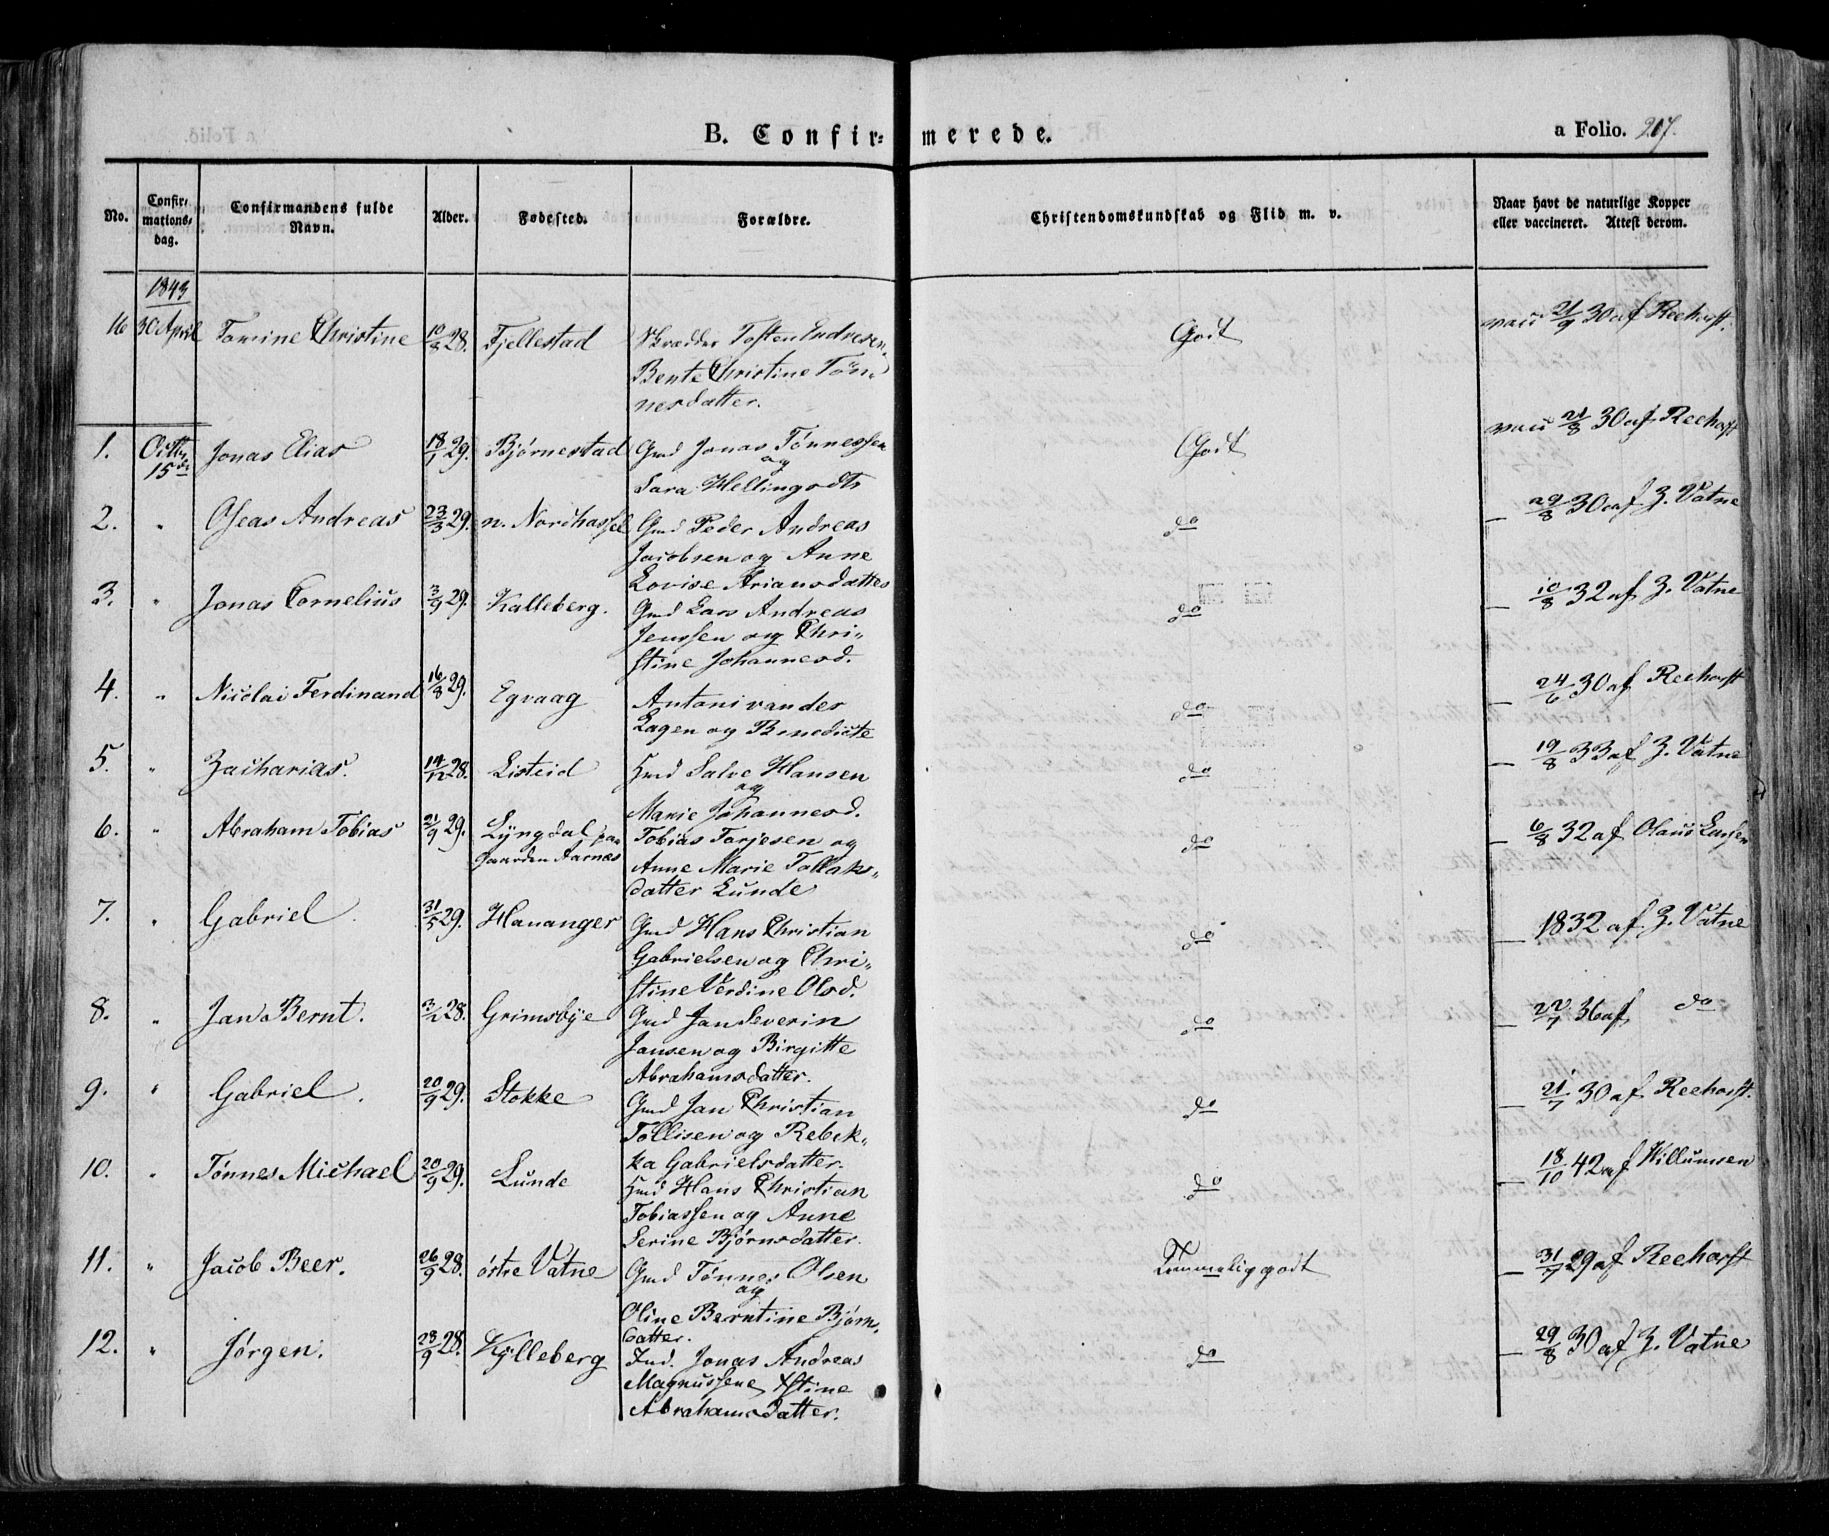 B. Confir= merede.
a Folio. 207.
No.
Confir=
mations=
dag.
Confirmandens fulde
Navn.
Alder.
Fødested.
Forældre.
Christendomskundskab og Flid m. v.
Naar havt de naturlige Kopper
eller vaccineret. Attest derom.
1843
16 30 April Tomine Christine 10/8 28. Fjellestad Skrædder Tosten Endresen Godt vacc 21/9 30 af Reehorst.
Bente Christine Tøn=
nesdatter.
1. Octb 15de Jonas Elias 18/1 29. Bjørnestad Gmd Jonas Tønnessen Godt vacc 21/8 30 af Reehorst
og
Sara Hellingsdtr
2. " Oseas Andreas 23/3 29. n. Nordhassel Gmd Peder Andreas do — 29/8 30 af Z. Vatne
Jacobsen og Anne
Lovise Ariansdatter
3. " Jonas Cornelius 3/9 29. Kalleberg. Gmd Lars Andreas do — 10/8 32 af Z. Vatne
Jenssen og Chri=
stine Johannesd.
4. " Nicolai Ferdinand 16/8 29. Egvaag Antoni van der do — 24/6 30 af Reehorst
Lagen og Benedicte
5. " Zacharias. 14/12 28. Listeid Hmd Salve Hansen do — 19/8 33 af Z. Vatne
og
Marie Johannesd.
6. " Abraham Tobias 21/9 29. Lyngdal paa Tobias Tarjesen og do — 6/8 32 af Olaus Larsen
Gaarden Aarnæs Anne Marie Tollaks=
datter Lunde
7. " Gabriel. 31/5 29. Hananger Gmd Hans Christian do — 1832 af Z. Vatne
Gabrielsen og Chri=
stine Verdine Olsd.
8. " Jan Bernt. 3/12 28. Grimsbye Gmd Jan Severin do — 22/7 36 af do
Jansen og Birgitte
Abrahamsdatter.
9. " Gabriel. 20/9 29. Stokke Gmd Jan Christian do — 21/7 30 af Reehorst.
Tollisen og Rebek=
ka Gabrielsdatter.
10. " Tønnes Michael 20/9 29. Lunde Hmd Hans Christian do — 18/10 42 af Willumsen
Tobiassen og Anne
Serine Bjørnsdatter.
11. " Jacob Beer. 26/9 28. østre Vatne Gmd Tønnes Olsen Temmelig godt — 31/7 29 af Reehorst
og
Oline Berntine Bjørn=
datter.
12. " Jørgen. 28/9 28. Kjlleberg Ind. Jonas Andreas do — 29/8 30 af Z. Vatne
Magnussen Stine
Abrahamsdatter.